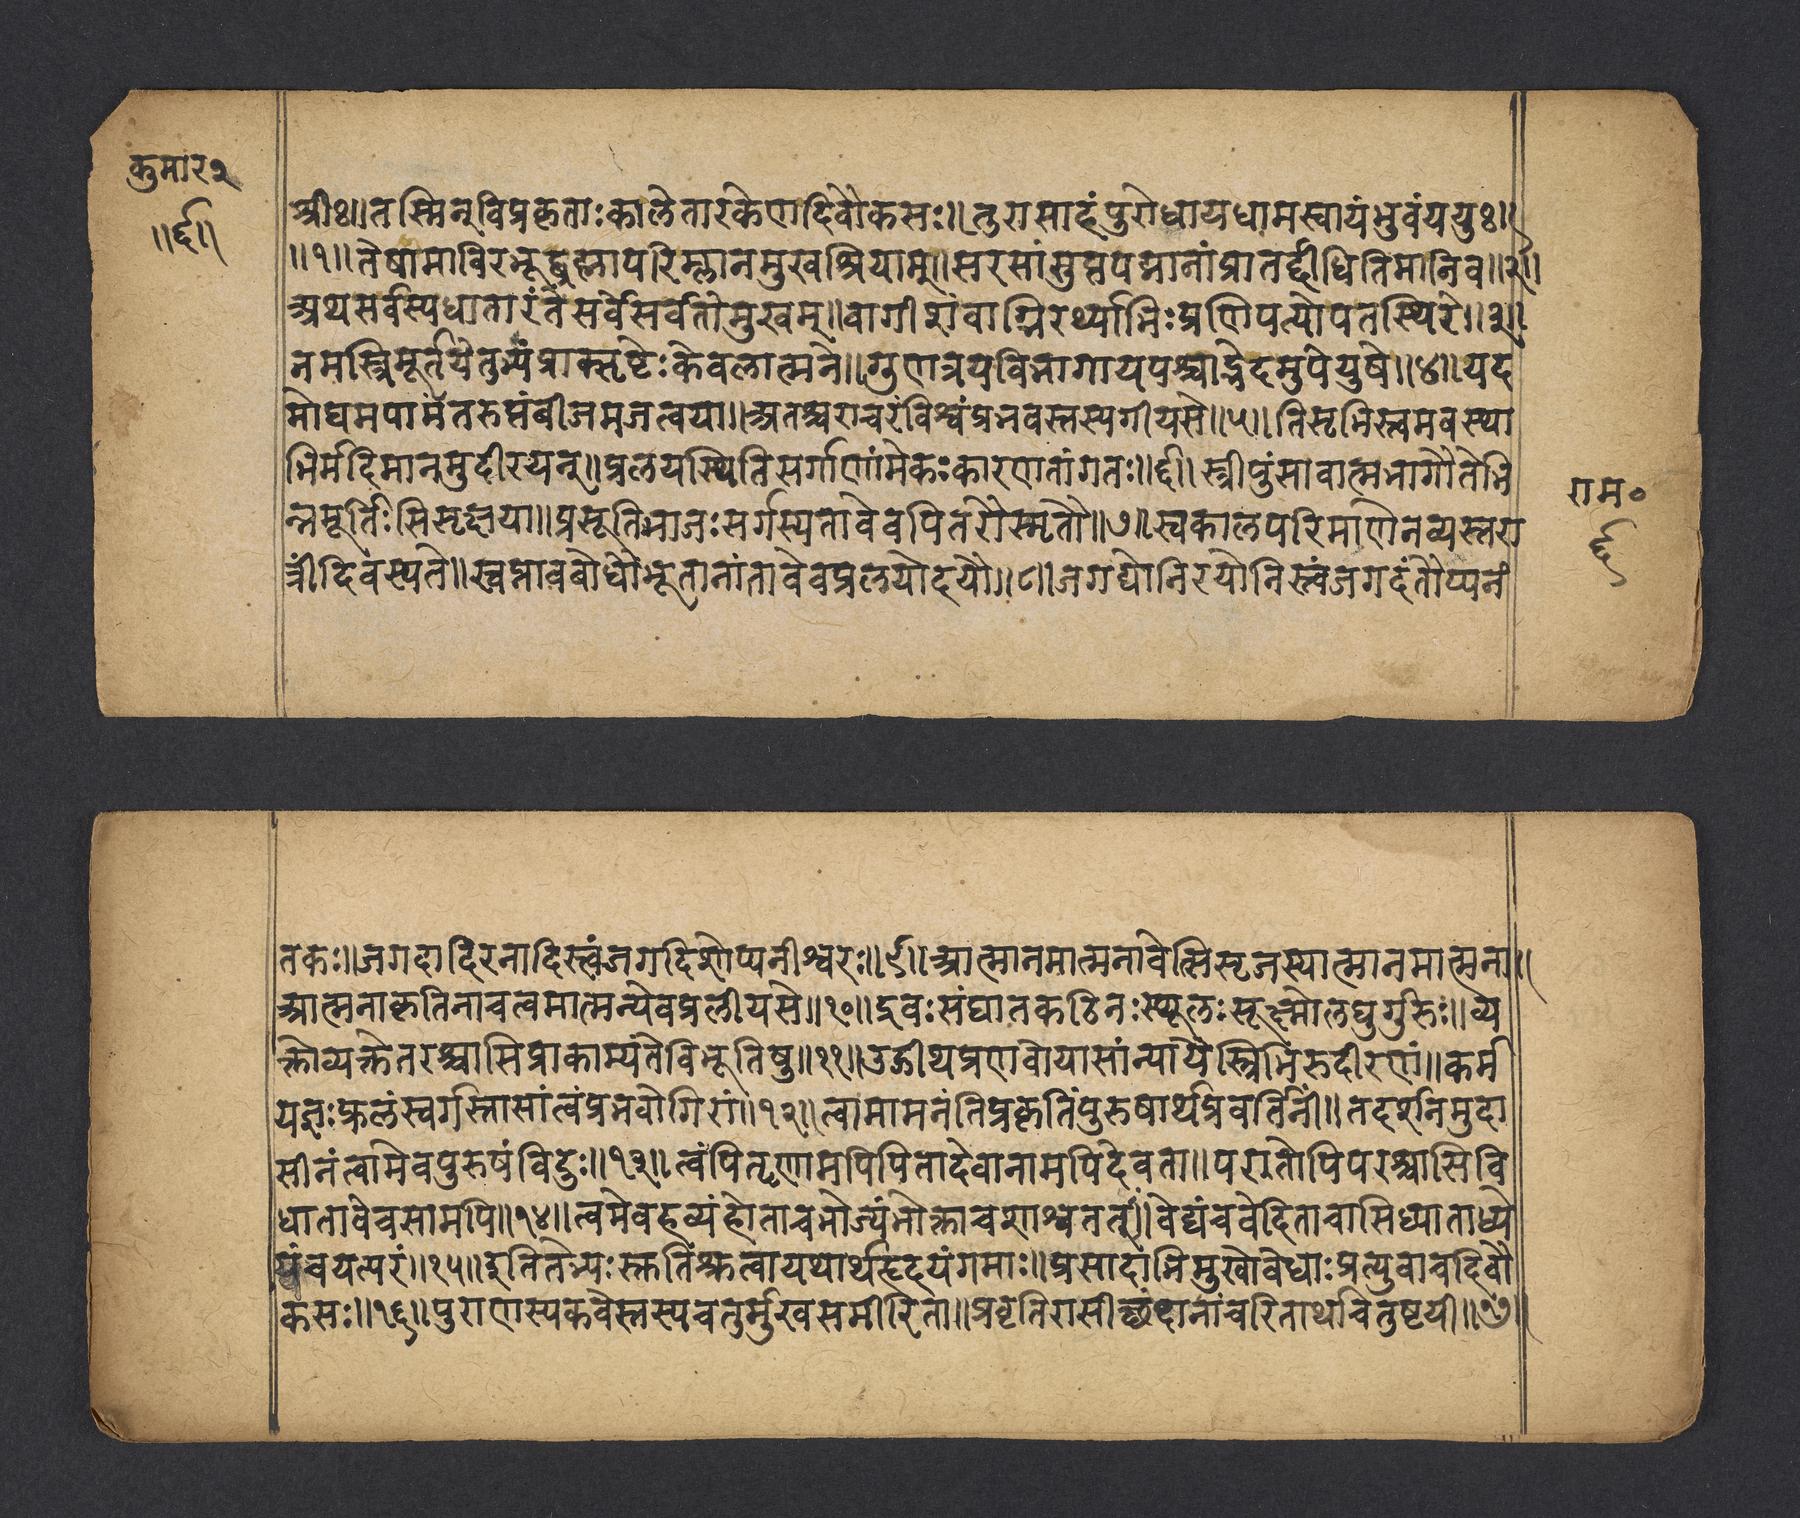 कुमार२
॥६॥
श्रीः॥तस्मिन्विप्रकृताःकालेतारकेणदिवौकसः॥तुरासाहंपुरोधायधामस्वायंभुवंययुः॥
॥१॥तेषामाविरभूद्ब्रह्मापरिम्लानमुखश्रियाम्॥सरसांसुप्तपद्मानांप्रातर्द्दीधितिमानिव॥२॥
अथसर्वस्यधातारंतेसर्वेसर्वतोमुखम्॥वागीशंवाग्भिरर्थ्याभिःप्रणिपत्योपतस्थिरे॥३॥
नमस्त्रिमूर्तयेतुभ्यंप्राक्सृष्टेःकेवलात्मने॥गुणत्रयविभागायपश्चाद्भेदमुपेयुषे॥४॥यद
मोघमपामंतरुप्तंबीजमजत्वया॥अतश्चराचरंविश्वंप्रभवस्तस्यगीयसे॥५॥तिसृभिस्त्वमवस्था
भिर्महिमानमुदीरयन्॥प्रलयस्थितिसर्गाणांमेकःकारणतांगतः॥६॥स्त्रीपुंसावात्मभागौतेभि
न्नमूर्तेःसिसृक्षया॥प्रसूतिभाजःसर्गस्यतावेवपितरौस्मृतौ॥७॥स्वकालपरिमाणेनव्यस्तरा
त्रिंदिवस्यते॥स्वप्नावबोधौभूतानांतावेवप्रलयोदयौ॥८॥जगद्योनिरयोनिस्त्वंजगदंतोप्यनं
राम०
६
तकः॥जगदादिरनादिस्त्वंजगदिशोप्यनीश्वरः॥९॥आत्मानमात्मनावेत्सिसृजस्यात्मानमात्मना॥
आत्मनाकृतिनाचत्वमात्मन्येवप्रलीयसे॥१०॥द्रवःसंघातकठिनःस्थूलःसूक्ष्मोलघुर्गुरुः॥व्य
क्तोव्यक्तेतरश्चासिप्राकाम्यंतेविभूतिषु॥११॥उद्गीथप्रणवोयासांन्यायैस्त्रिभिरुदीरणं॥कर्म
यज्ञःफलंस्वर्गस्तासांत्वंप्रभवोगिरां॥१२॥त्वामामनंतिप्रकृतिंपुरुषार्थप्रवर्तिनीं॥तदर्शनमुदा
सीनंत्वामेवपुरुषंविदुः॥१३॥त्वंपितॄणामपिपितादेवानामपिदेवता॥परातोपिपरश्चासिवि
धातावेधसामपि॥१४॥त्वमेवहव्यंहोताचभोज्यंभोक्ताचशाश्वततः॥वेद्यंचवेदिताचासिध्याताध्ये
यंचयत्परं॥१५॥इतितेभ्यःस्तुतिंश्रुत्वायथार्थहृदयंगमाः॥प्रसादाभिमुखोवेधाःप्रत्युवाचदिवौ
कसः॥१६॥पुराणस्यकवेस्तस्यचतुर्मुखसमीरिता॥प्रवृतिरासीच्छंदानांचरितार्थाचतुष्टयी॥१७॥